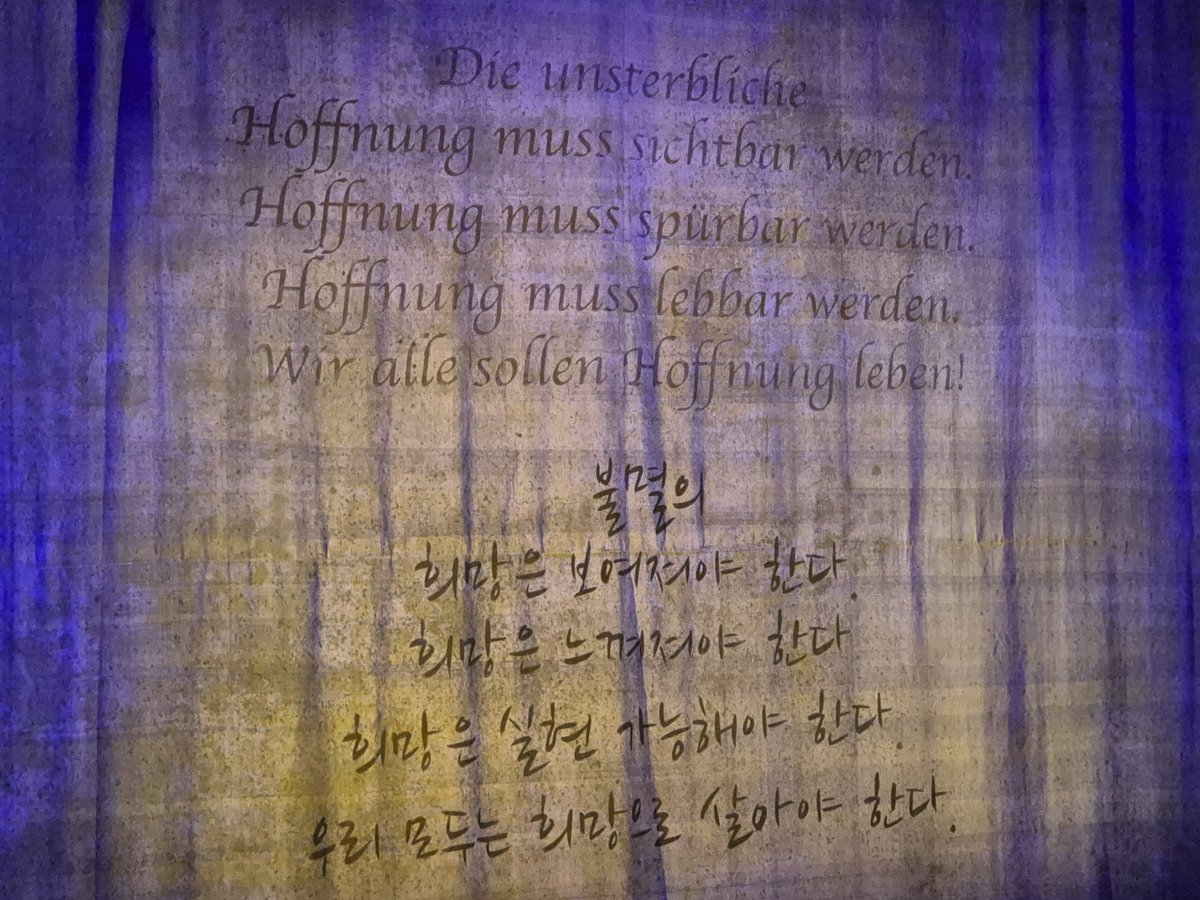 Die unsterbliche
Hoffnung muss sichtbar werden.
Hoffnung muss spürbar werden.
Hoffnung muss lebbar werden.
Wir alle sollen Hoffnung leben!
불멸의
희망은 보여져야 한다.
희망은 느껴져야 한다
희망은 실현 가능해야 한다.
우리 모두는 희망으로 살아야 한다.